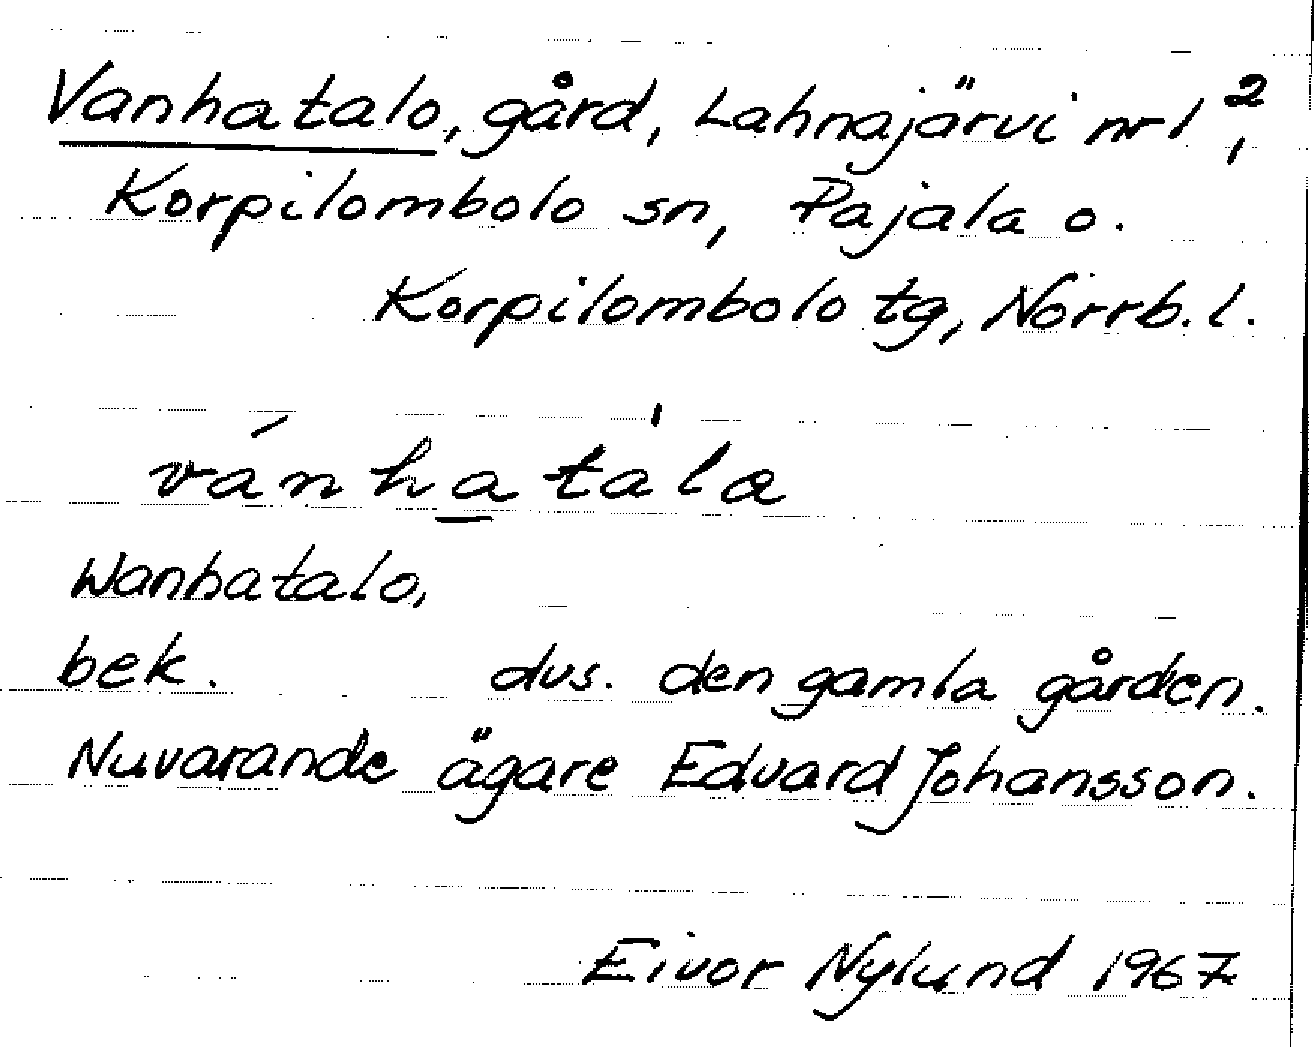 Vanhatalo, gård, Lahnajärvi nr 1²,
Korpilombolo sn, Pajala o.
Korpilombolo tg, Norrb. l.
vánha̲tálå
Wanhatalo,
bek. dvs. den gamla gården.
Nuvarande ägare Edvard Johansson.
Eivor Nylund 1967